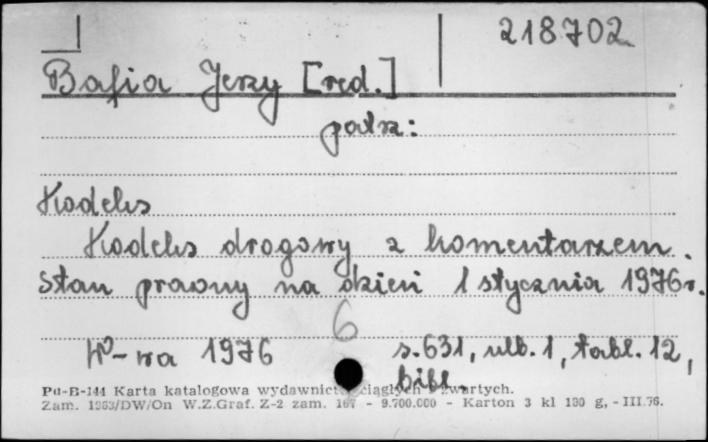 218702
Bafia Jerzy [red.]
patrz:
Kodeks
Kodeks drogowy z komentarzem.
Stan prawny na dzień 1 stycznia 1976r.
6
W-wa 1976 s.631, nlb.1, tabl.12,
bibl.
Pu-B-144 Karta katalogowa wydawnictw ciągłych i zwartych.
Zam. 1263/DW/On W.Z.Graf. Z-2 zam. 167 - 9.700.000 - Karton 3 kl 190 g, - III.76.